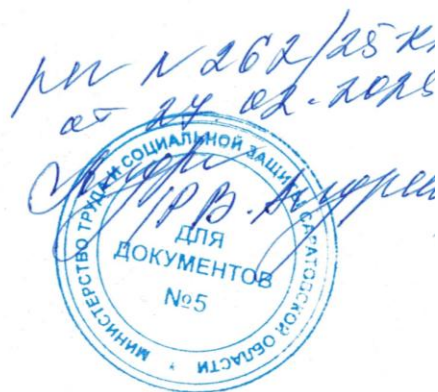 рег N 262/25-к
от 27.02.2025
Р.В.
МИНИСТЕРСТВО ТРУДА И СОЦИАЛЬНОЙ ЗАЩИТЫ САРАТОВСКОЙ ОБЛАСТИ
ДЛЯ
ДОКУМЕНТОВ
№5